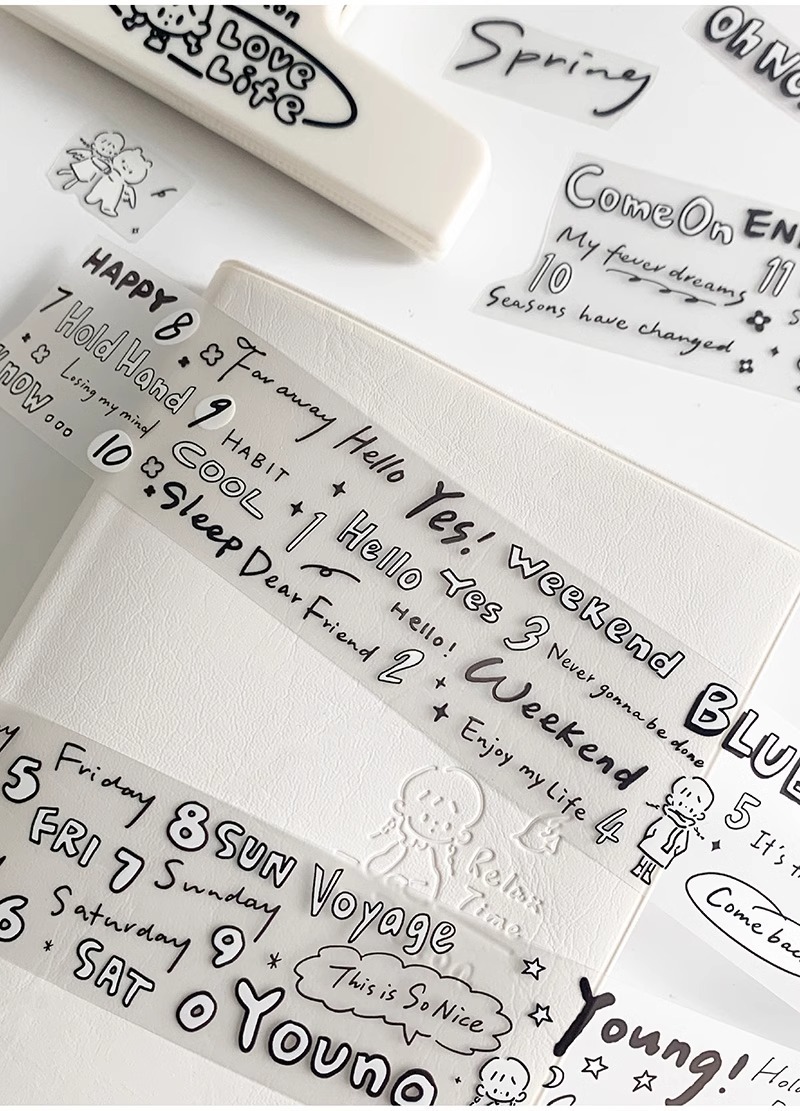 Love
Life
Spring
Oh No
Come On
My fever dreams
10
11
Seasons have changed
HAPPY
7
8
Hold Hand
Losing my mind
now...
9
10
Far away
Hello
Yes!
weekend
BLUE
HABIT
COOL
1
Hello
Yes
3
Never gonna be done
Sleep
Dear Friend
Hello!
2
Weekend
Enjoy my Life
4
5
It's
Come back
Relax
Time
5
Friday
8
SUN
Voyage
FRI
7
Sunday
6
Saturday
9
This is So Nice
SAT
0
Young
Young!